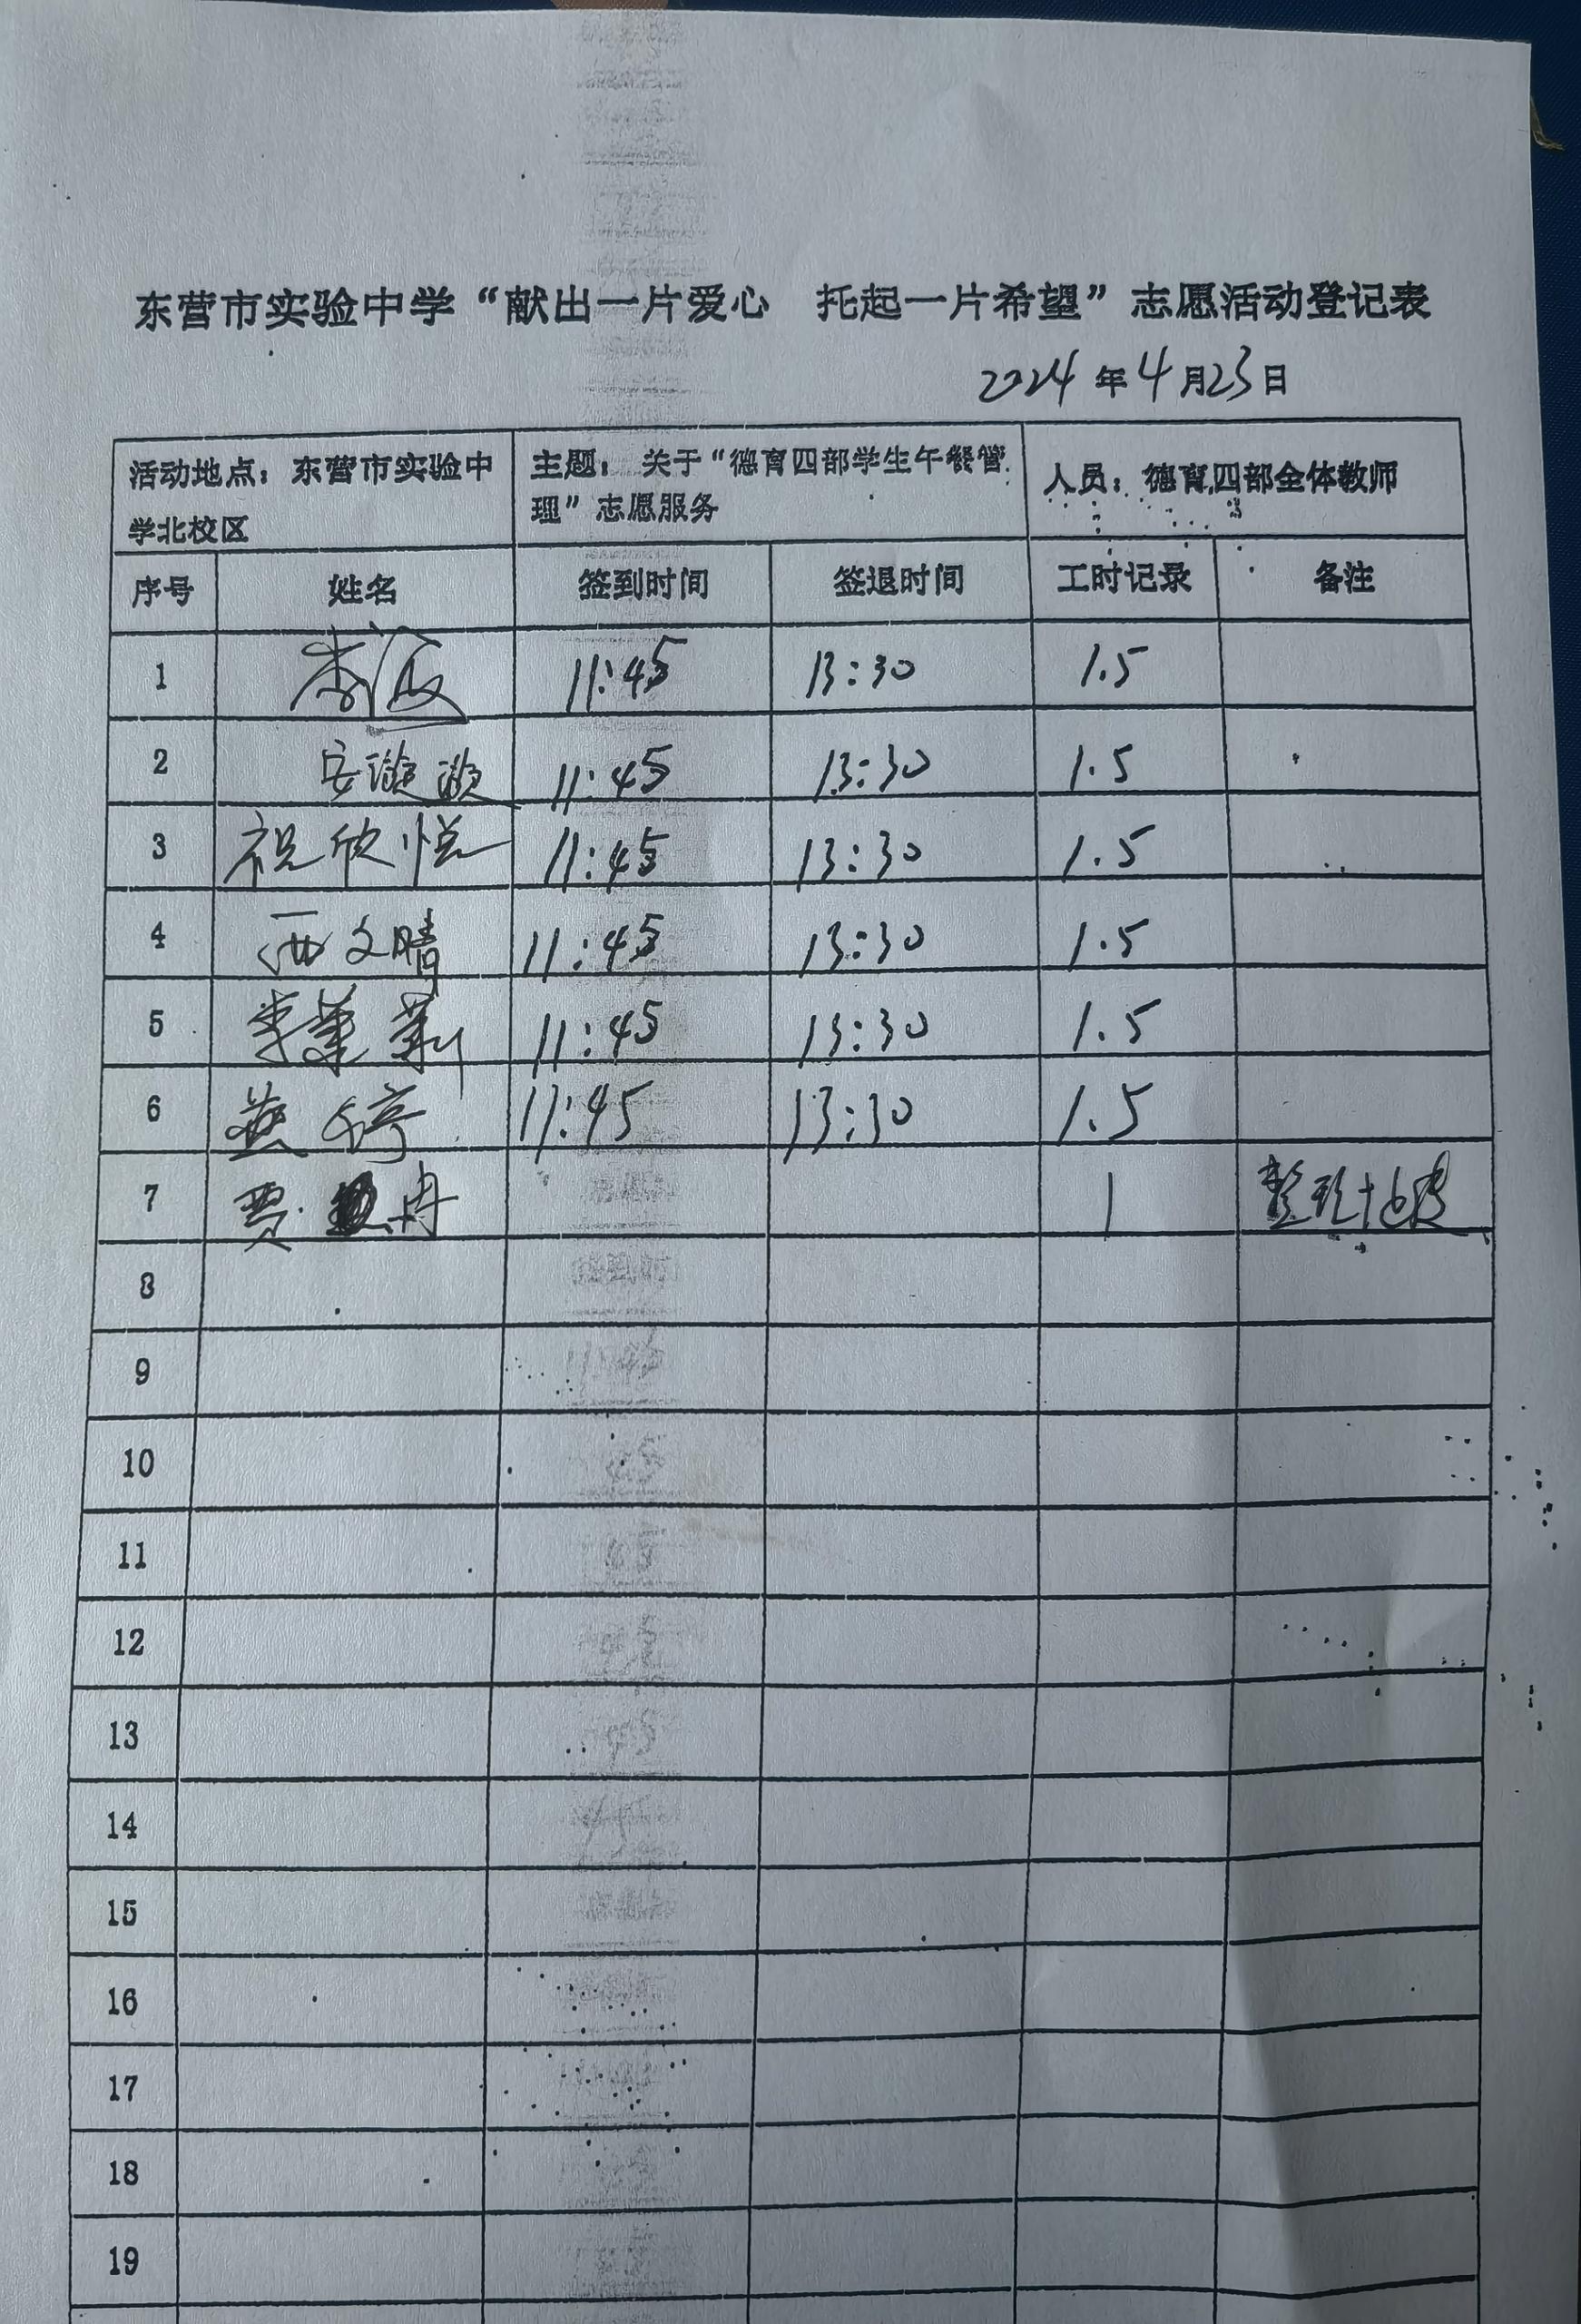 东营市实验中学“献出一片爱心 托起一片希望”志愿活动登记表
2024年4月23日
活动地点：东营市实验中学北校区 主题：关于“德育四部学生午餐管理”志愿服务 人员：德育四部全体教师
序号 姓名 签到时间 签退时间 工时记录 备注
1 李 11:45 13:30 1.5
2 安 11:45 13:30 1.5
3 祝欣悦 11:45 13:30 1.5
4 西文晴 11:45 13:30 1.5
5 李 莉 11:45 13:30 1.5
6 燕婷 11:45 13:30 1.5
7 贾冉 1 整理
8
9
10
11
12
13
14
15
16
17
18
19